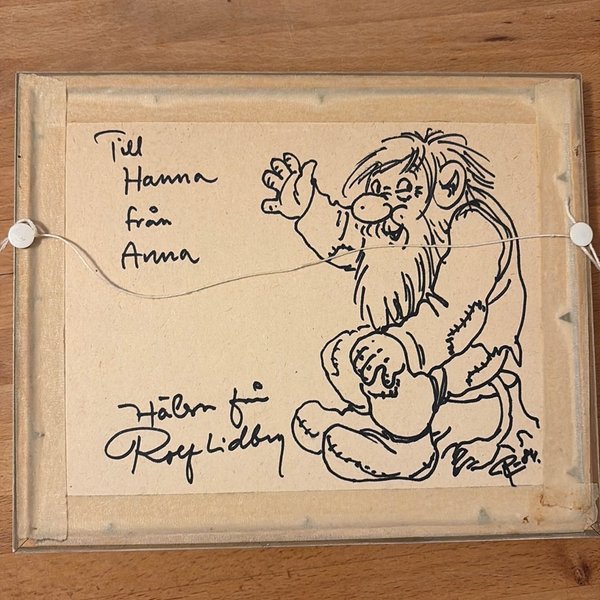 Till
Hanna
från
Anna
Hälsn från
Rolf Lidberg
RL 84.